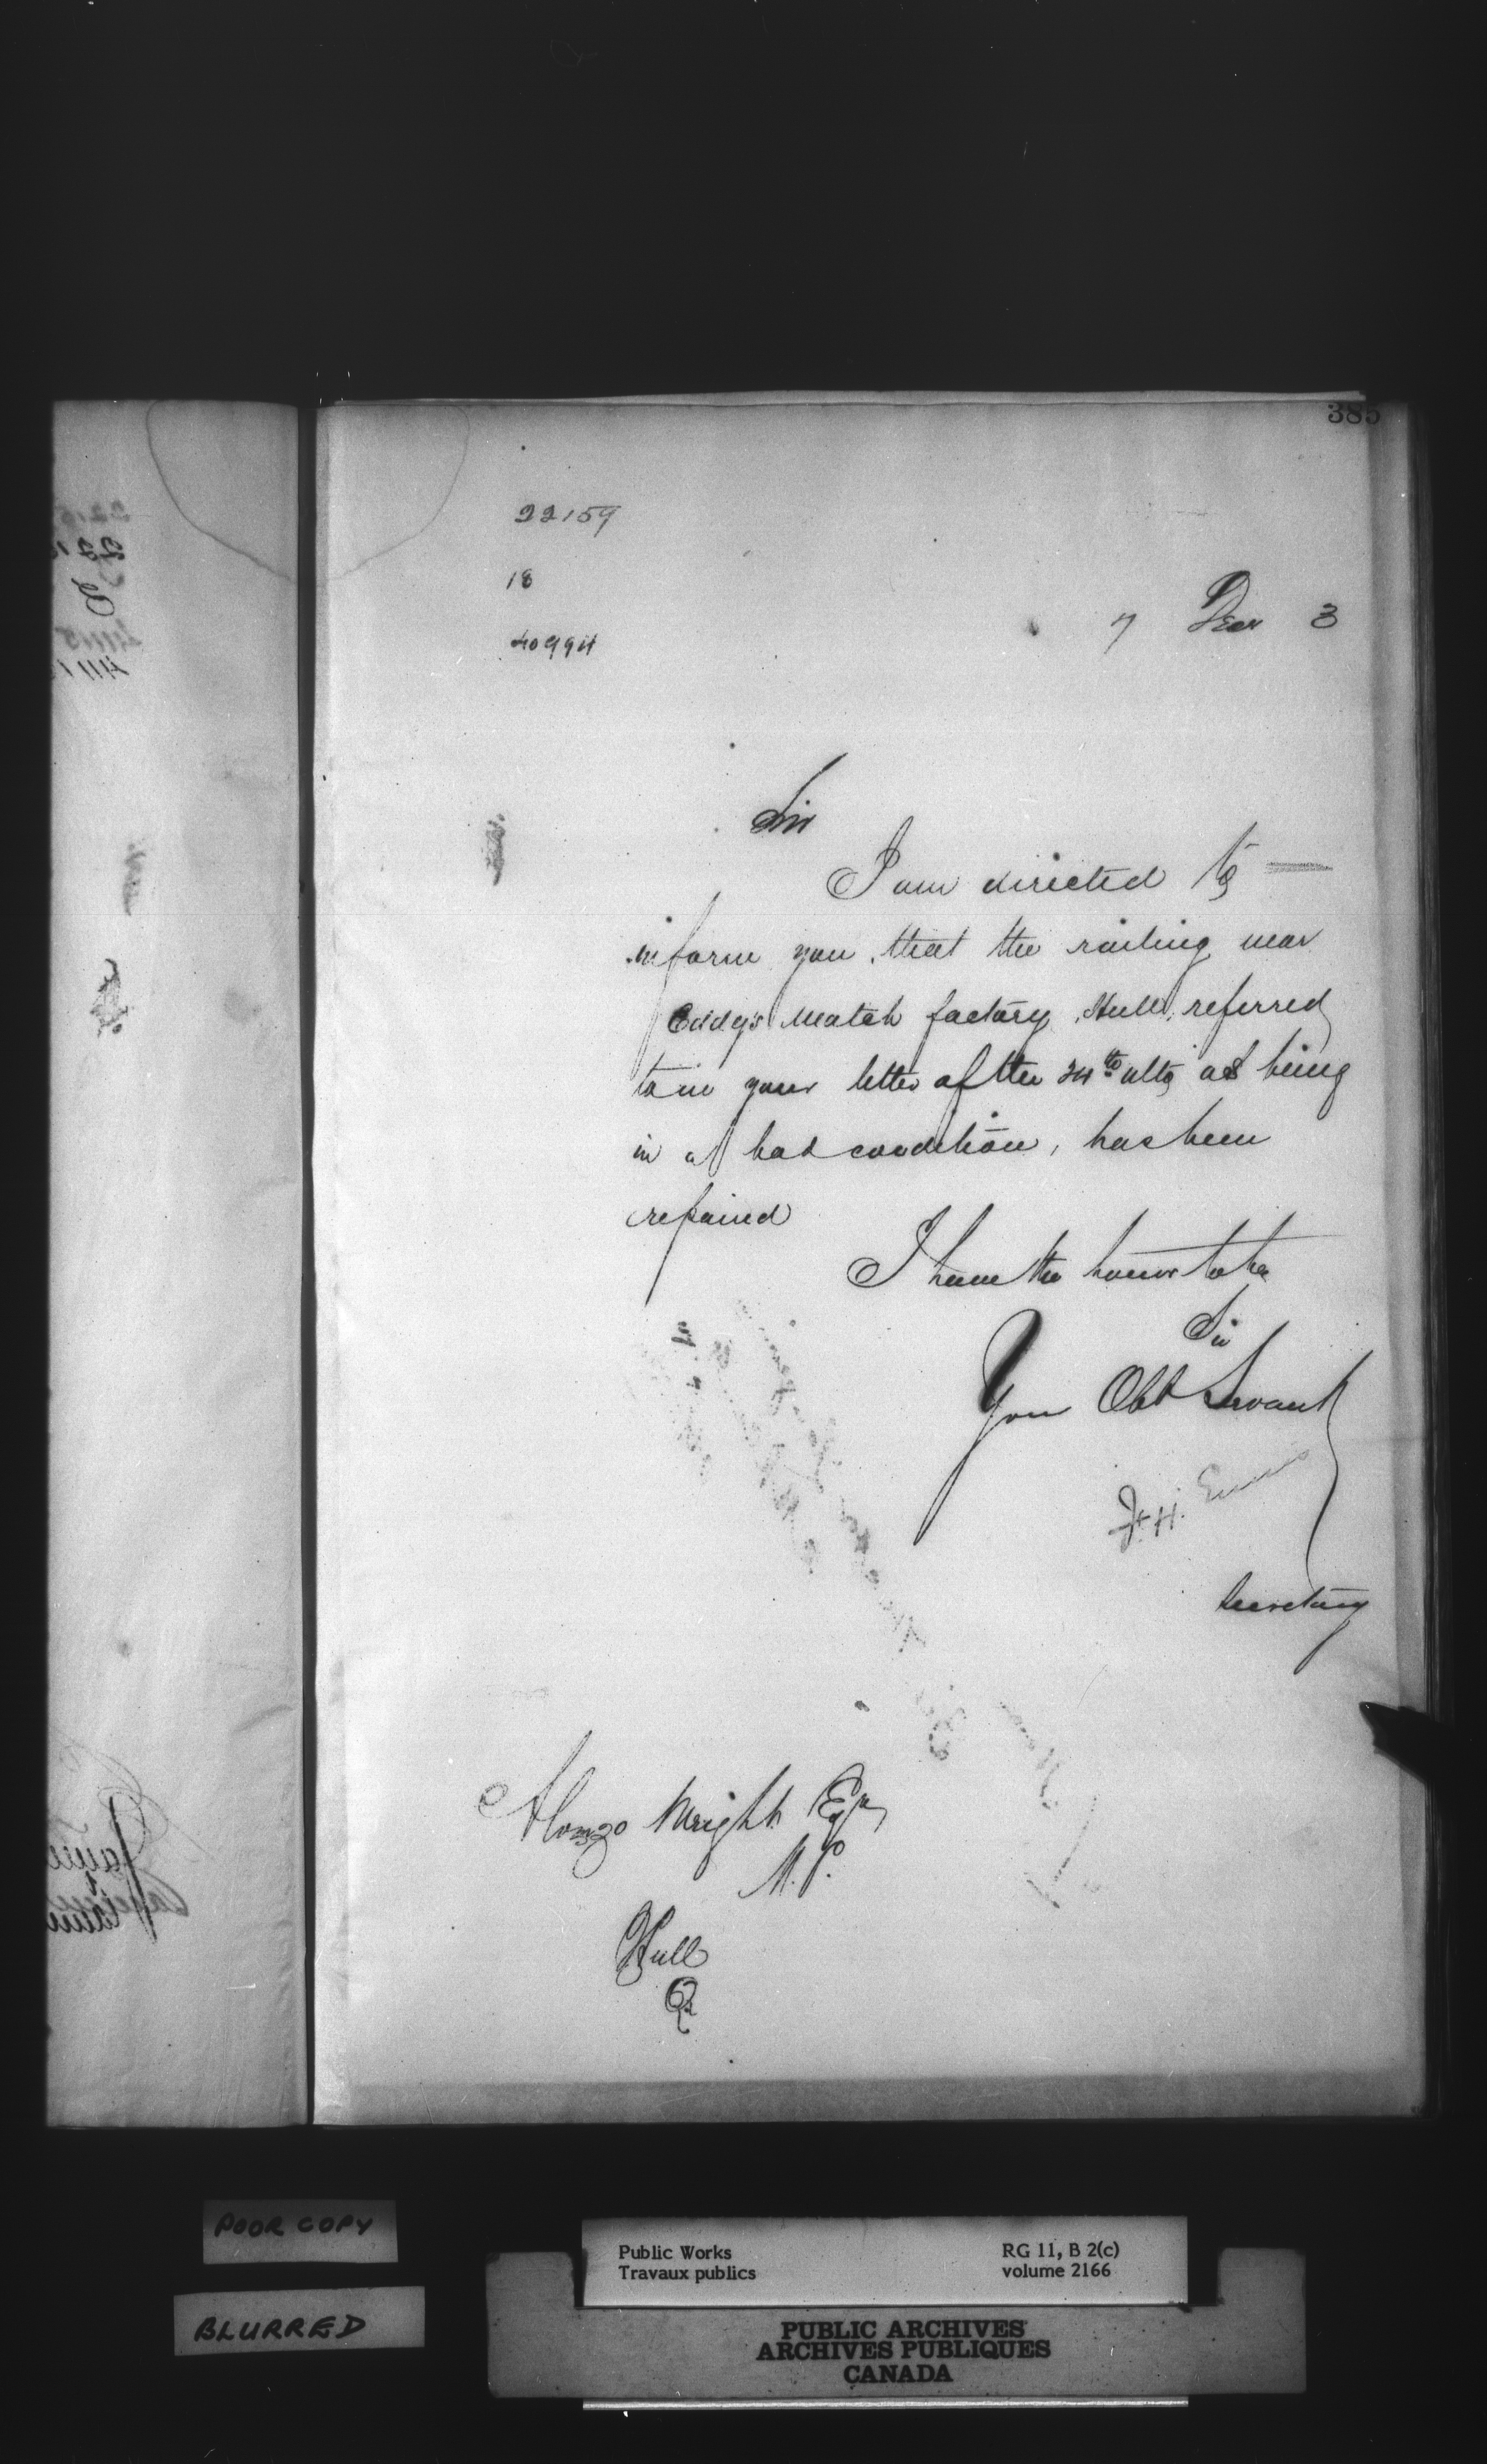 385
22159
18
40994
7 Decr 3
Sir
I am directed to
inform you that the railing near
Eddy's Match factory, Hull, referred
to in your letter of the 24th ulto as being
in a bad condition, has been
repaired
I have the honor to be
Sir
Your Obt Servant
F. H. Ennis
Secretary
Alonzo Wright Esqr
M.P.
Hull
Q.
POOR COPY
BLURRED
Public Works RG 11, B 2(c)
Travaux publics volume 2166
PUBLIC ARCHIVES
ARCHIVES PUBLIQUES
CANADA